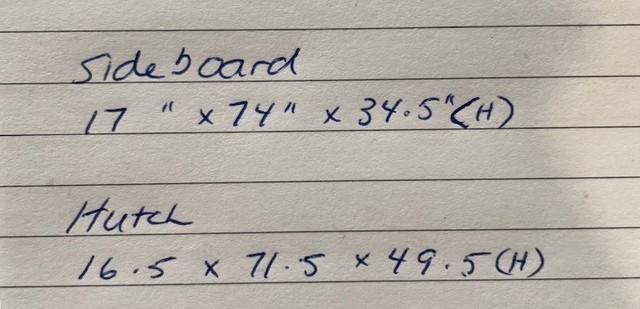 Sideboard
17 " x 74" x 34.5"(H)
Hutch
16.5 x 71.5 x 49.5(H)